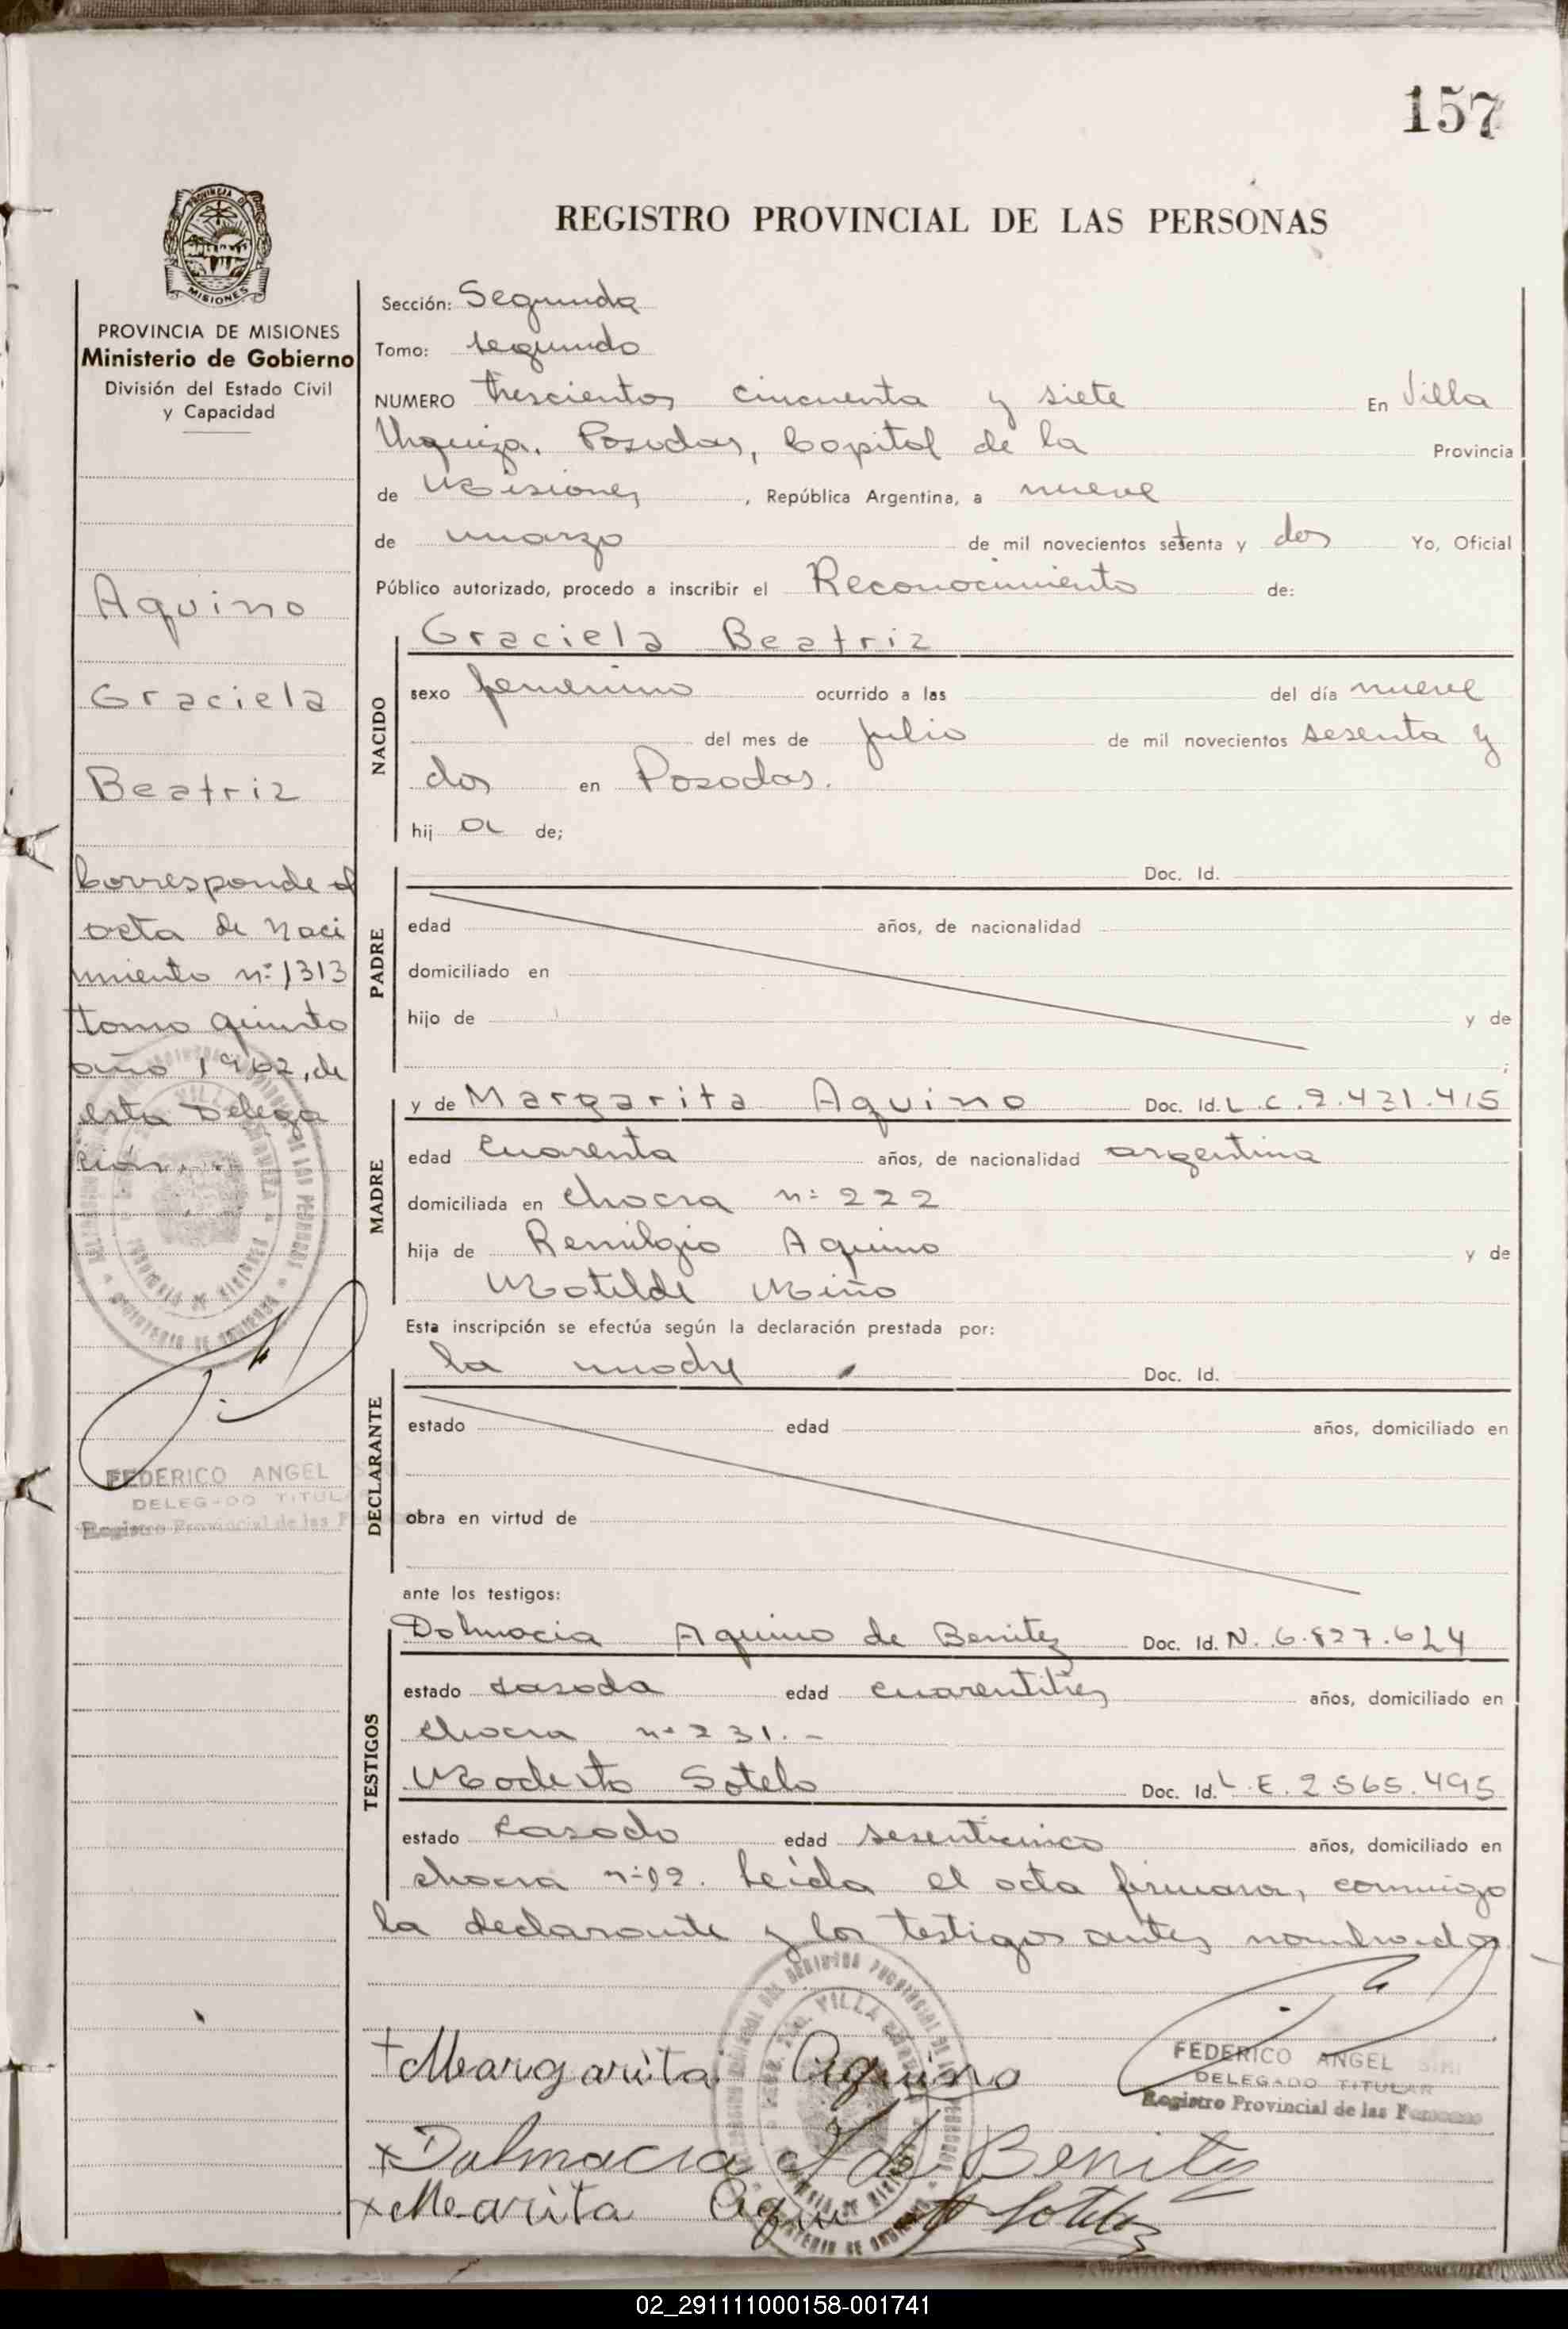 157
REGISTRO PROVINCIAL DE LAS PERSONAS
MISIONES
PROVINCIA DE MISIONES
Ministerio de Gobierno
División del Estado Civil
y Capacidad
Aquino
Graciela
Beatriz
Corresponde al
acta de Naci
miento nº 1313
tomo quinto
año 1962, de
esta Delega
ción.
FEDERICO ANGEL
DELEGADO TITULAR
Registro Provincial de las
Sección: Segunda
Tomo: segundo
NUMERO trescientos cincuenta y siete En Villa
Urquiza. Posadas, Capital de la Provincia
de Misiones, República Argentina, a nueve
de marzo de mil novecientos setenta y dos Yo, Oficial
Público autorizado, procedo a inscribir el Reconocimiento de:
NACIDO
Graciela Beatriz
sexo femenino ocurrido a las del día nueve
del mes de julio de mil novecientos sesenta y
dos en Posadas.
hij a de;
PADRE
Doc. Id.
edad años, de nacionalidad
domiciliado en
hijo de y de
;
MADRE
y de Margarita Aquino Doc. Id. L.C. 2.431.415
edad cuarenta años, de nacionalidad argentina
domiciliada en chacra nº 222
hija de Remilgio Aquino y de
Matilde Miño
Esta inscripción se efectúa según la declaración prestada por:
DECLARANTE
la madre Doc. Id.
estado edad años, domiciliado en
obra en virtud de
ante los testigos:
TESTIGOS
Dalmacia Aquino de Benitez Doc. Id. N. 6.827.624
estado casada edad cuarentitres años, domiciliado en
chacra nº 231.-
Modesto Sotelo Doc. Id. L.E. 2.565.495
estado casado edad sesenticinco años, domiciliado en
chacra nº 92. Leída el acta firman, conmigo
la declarante y los testigos antes nombrados
Margarita Aquino
FEDERICO ANGEL
DELEGADO TITULAR
Registro Provincial de las Personas
Dalmacia A de Benitez
Mearita Aqui M Sotelo
02_291111000158-001741